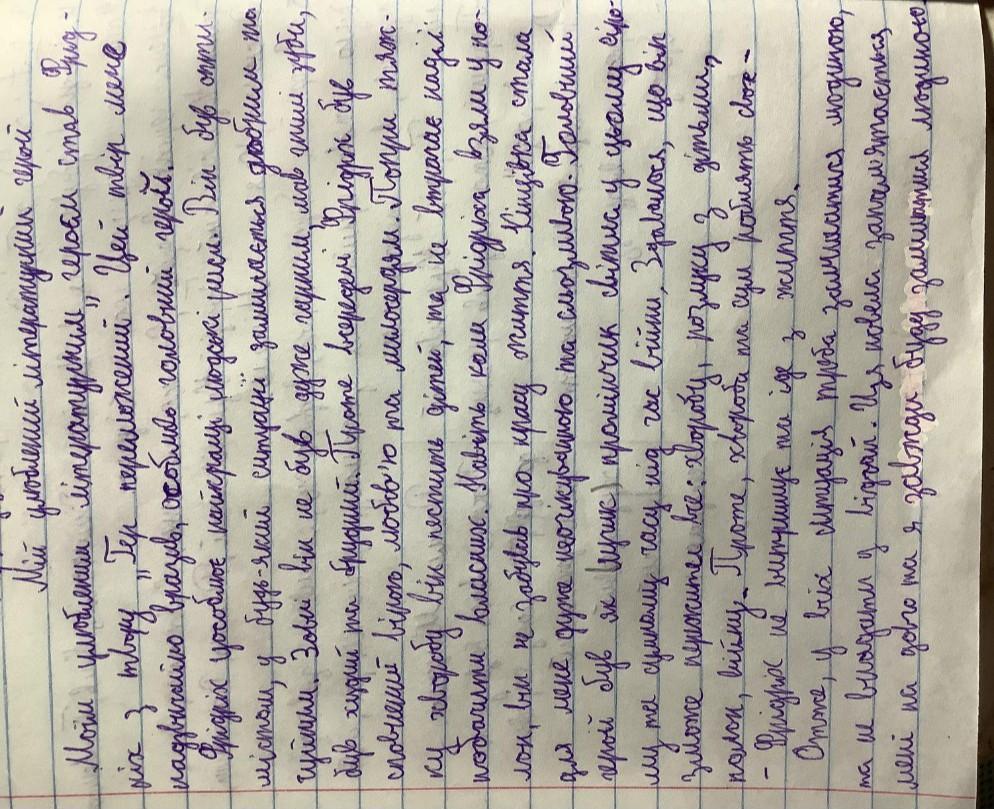 Мій улюблений літературний герой
Моїм улюбленим літературним героєм став Фрід-
ріх з твору „Гер переможений". Цей твір мене
надзвичайно вразив, особливо головний герой.
Фрідріх уособлює найкращі людські риси. Він був опти-
містом, у будь-якій ситуації залишається добрим та
чуйним. Зовні він не був дуже гарним: мав гнилі зуби,
був худий та брудний. Проте всередині Фрідріх був
сповнений вірою, любов'ю та милосердям. Попри тяж-
ку хворобу він пестить дітей, та не втрачає надії
побачити власних. Навіть коли Фрідріха взяли у по-
лон, він не забував про красу життя. Кінцівка стала
для мене дуже неочікуваною та смозливою. Головний
герой був як лучик, промінчик світла у цьому сіро-
му та сумному часу під час війни, здавалося, що він
зможе пережити все: хворобу, розлуку з дітьми,
полон, війну. Проте, хвороба та сум роблять своє -
- Фрідріх не витримує та іде з життя.
Отже, у всіх ситуаціях треба залишатися людиною,
та не впадати у відчай. Ця новела запам'ятається
мені на довго та я завжди буду залишати людиною